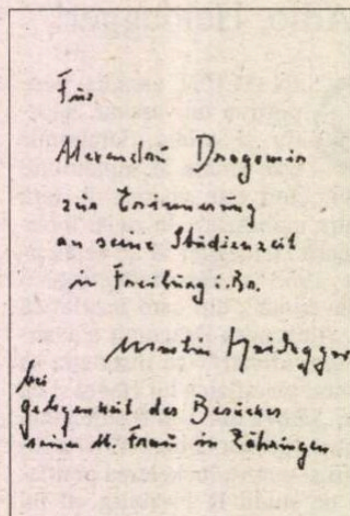 Für
Alexandru Dragomir
zur Erinnerung
an seine Studienzeit
in Freiburg i. Br.
Martin Heidegger
bei
Gelegenheit des Besuches
seiner Frau in Zähringen